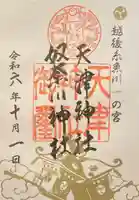 越後糸魚川 一の宮
天津神社
奴奈川神社
令和六年十月一日
天津